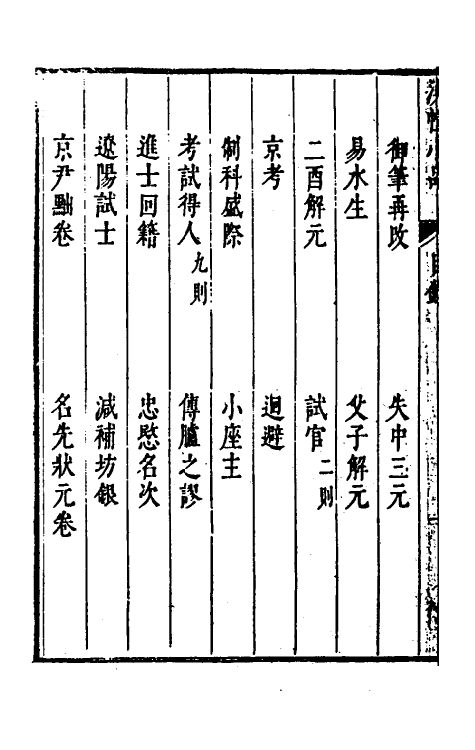 御筆再改　失中三元
易水生　父子解元
二酉解元　試官二則
京考　迴避
制科盛際　小座主
考試得人九則　傳臚之謬
進士回籍　忠愍名次
遼陽試士　減補坊銀
京尹黜卷　名先狀元卷